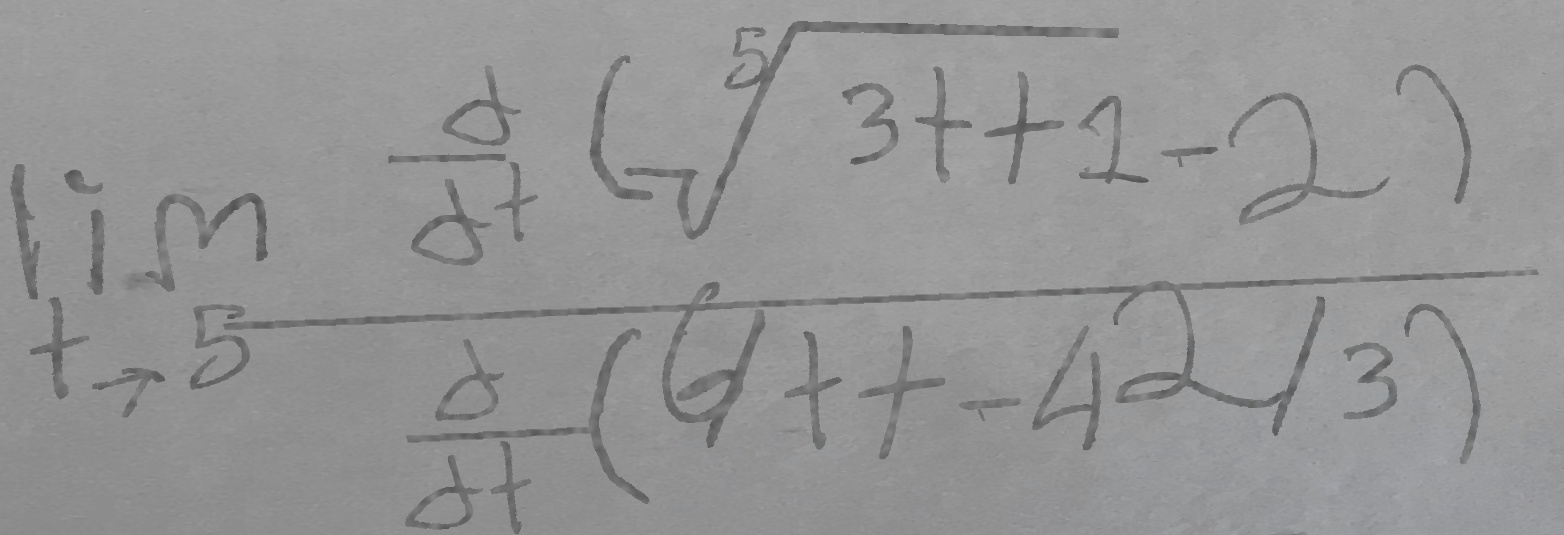 lim t→5 \frac{\frac{d}{dt}(\sqrt[5]{3t+1}-2)}{\frac{d}{dt}(+t-4^2/3)}